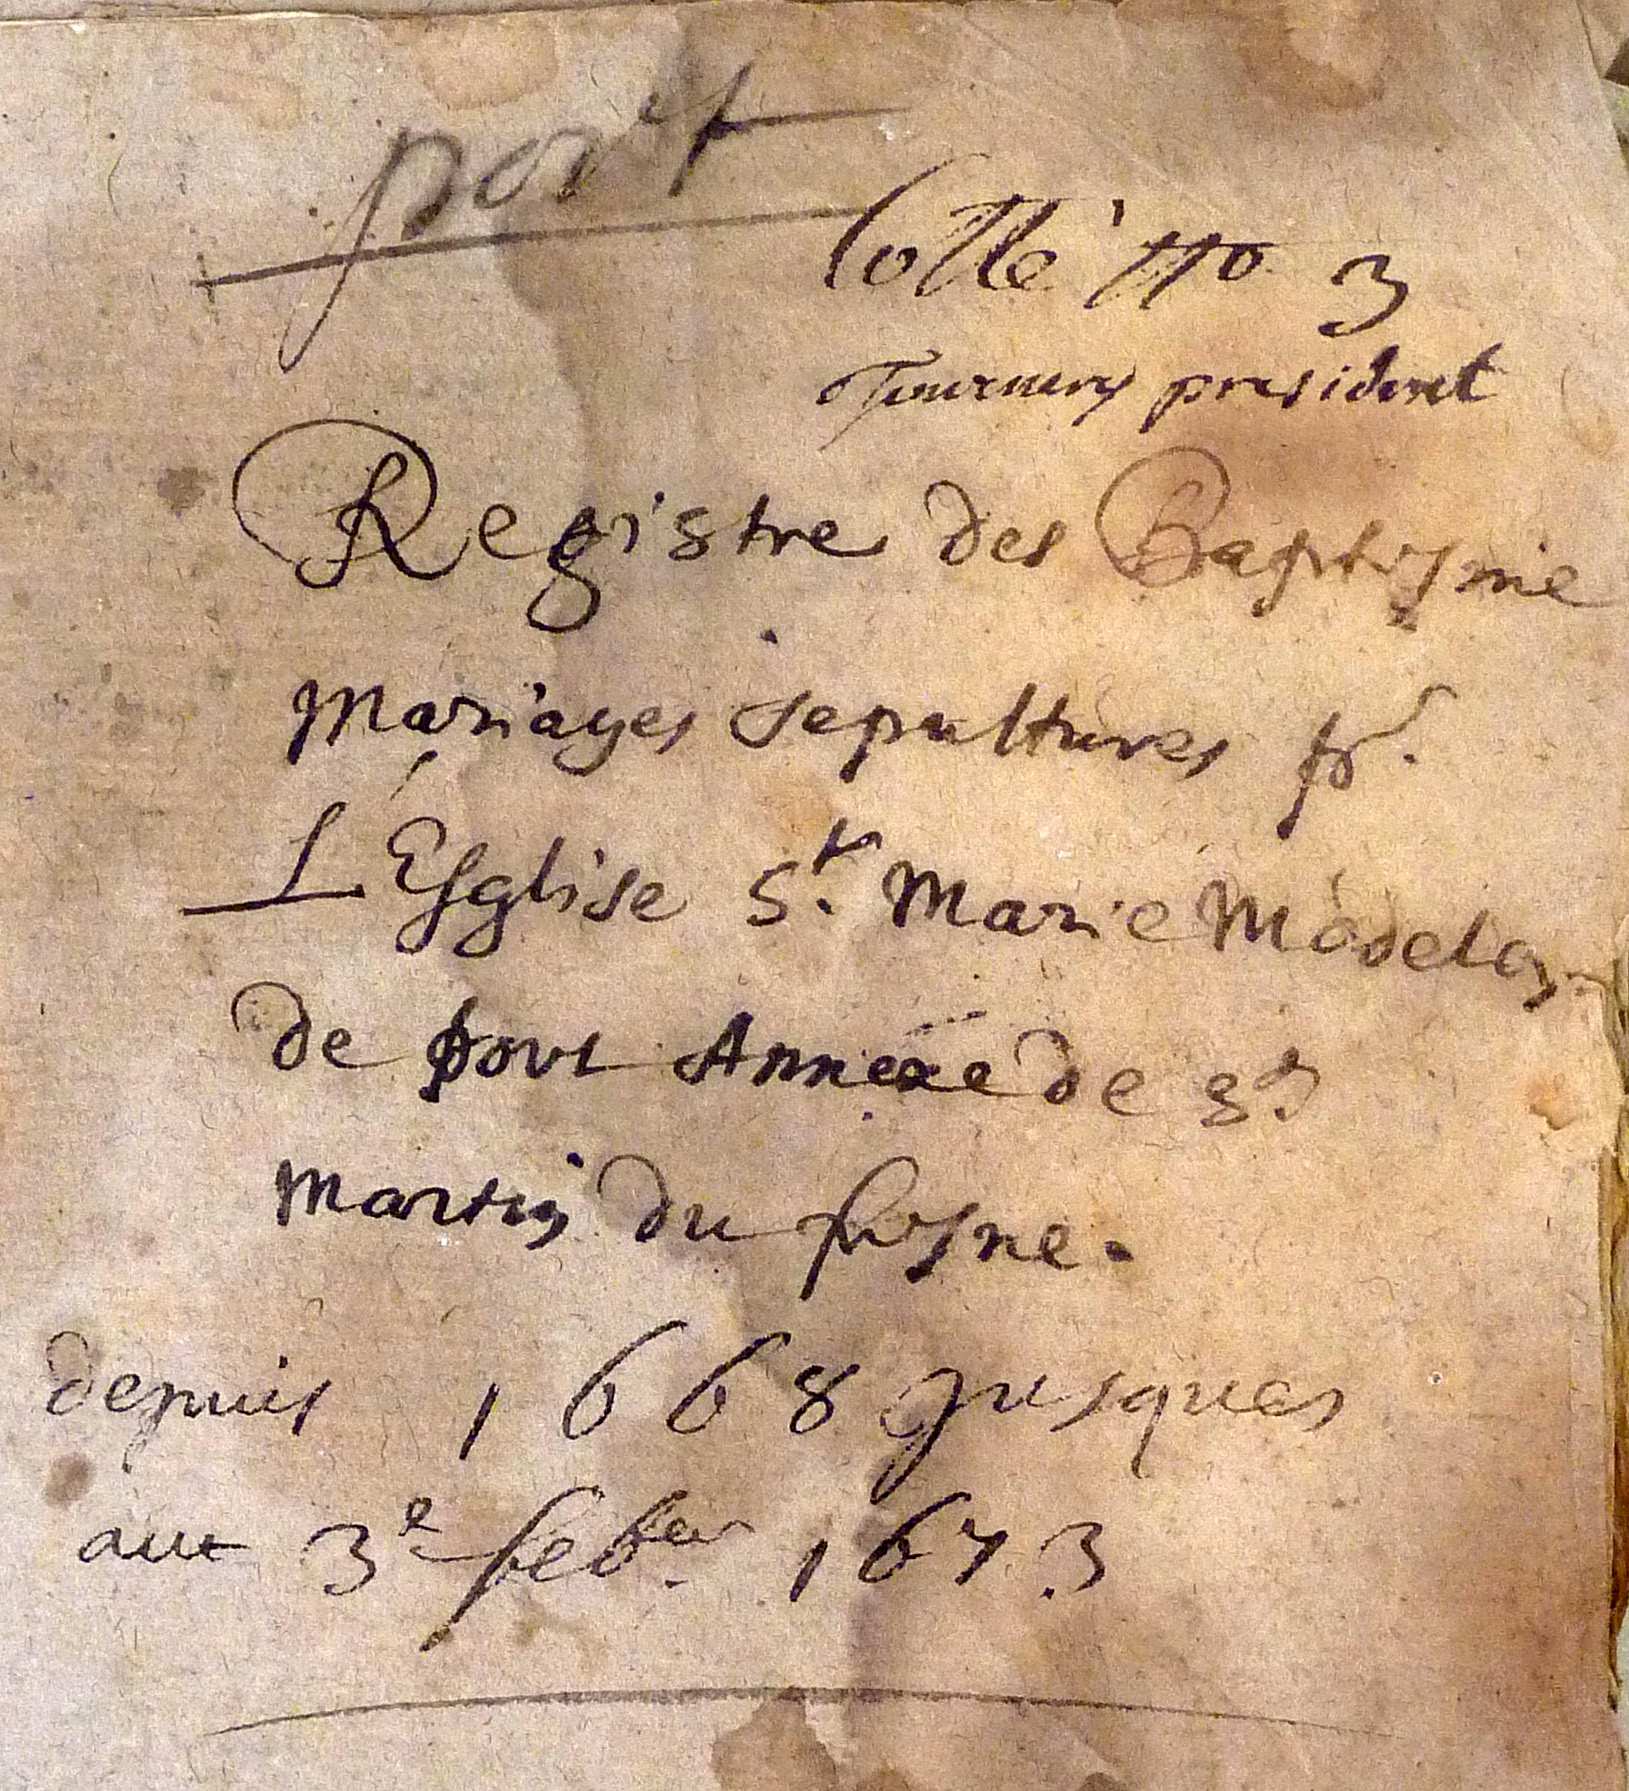 port
Cotté No 3
president
Registre des Baptesme
Mariages sepultures pr.
L'Esglise St. Marie Madelay
de port Annexe de St
Martin du fresne.
depuis 1668 jusques
aut 3e feber 1673